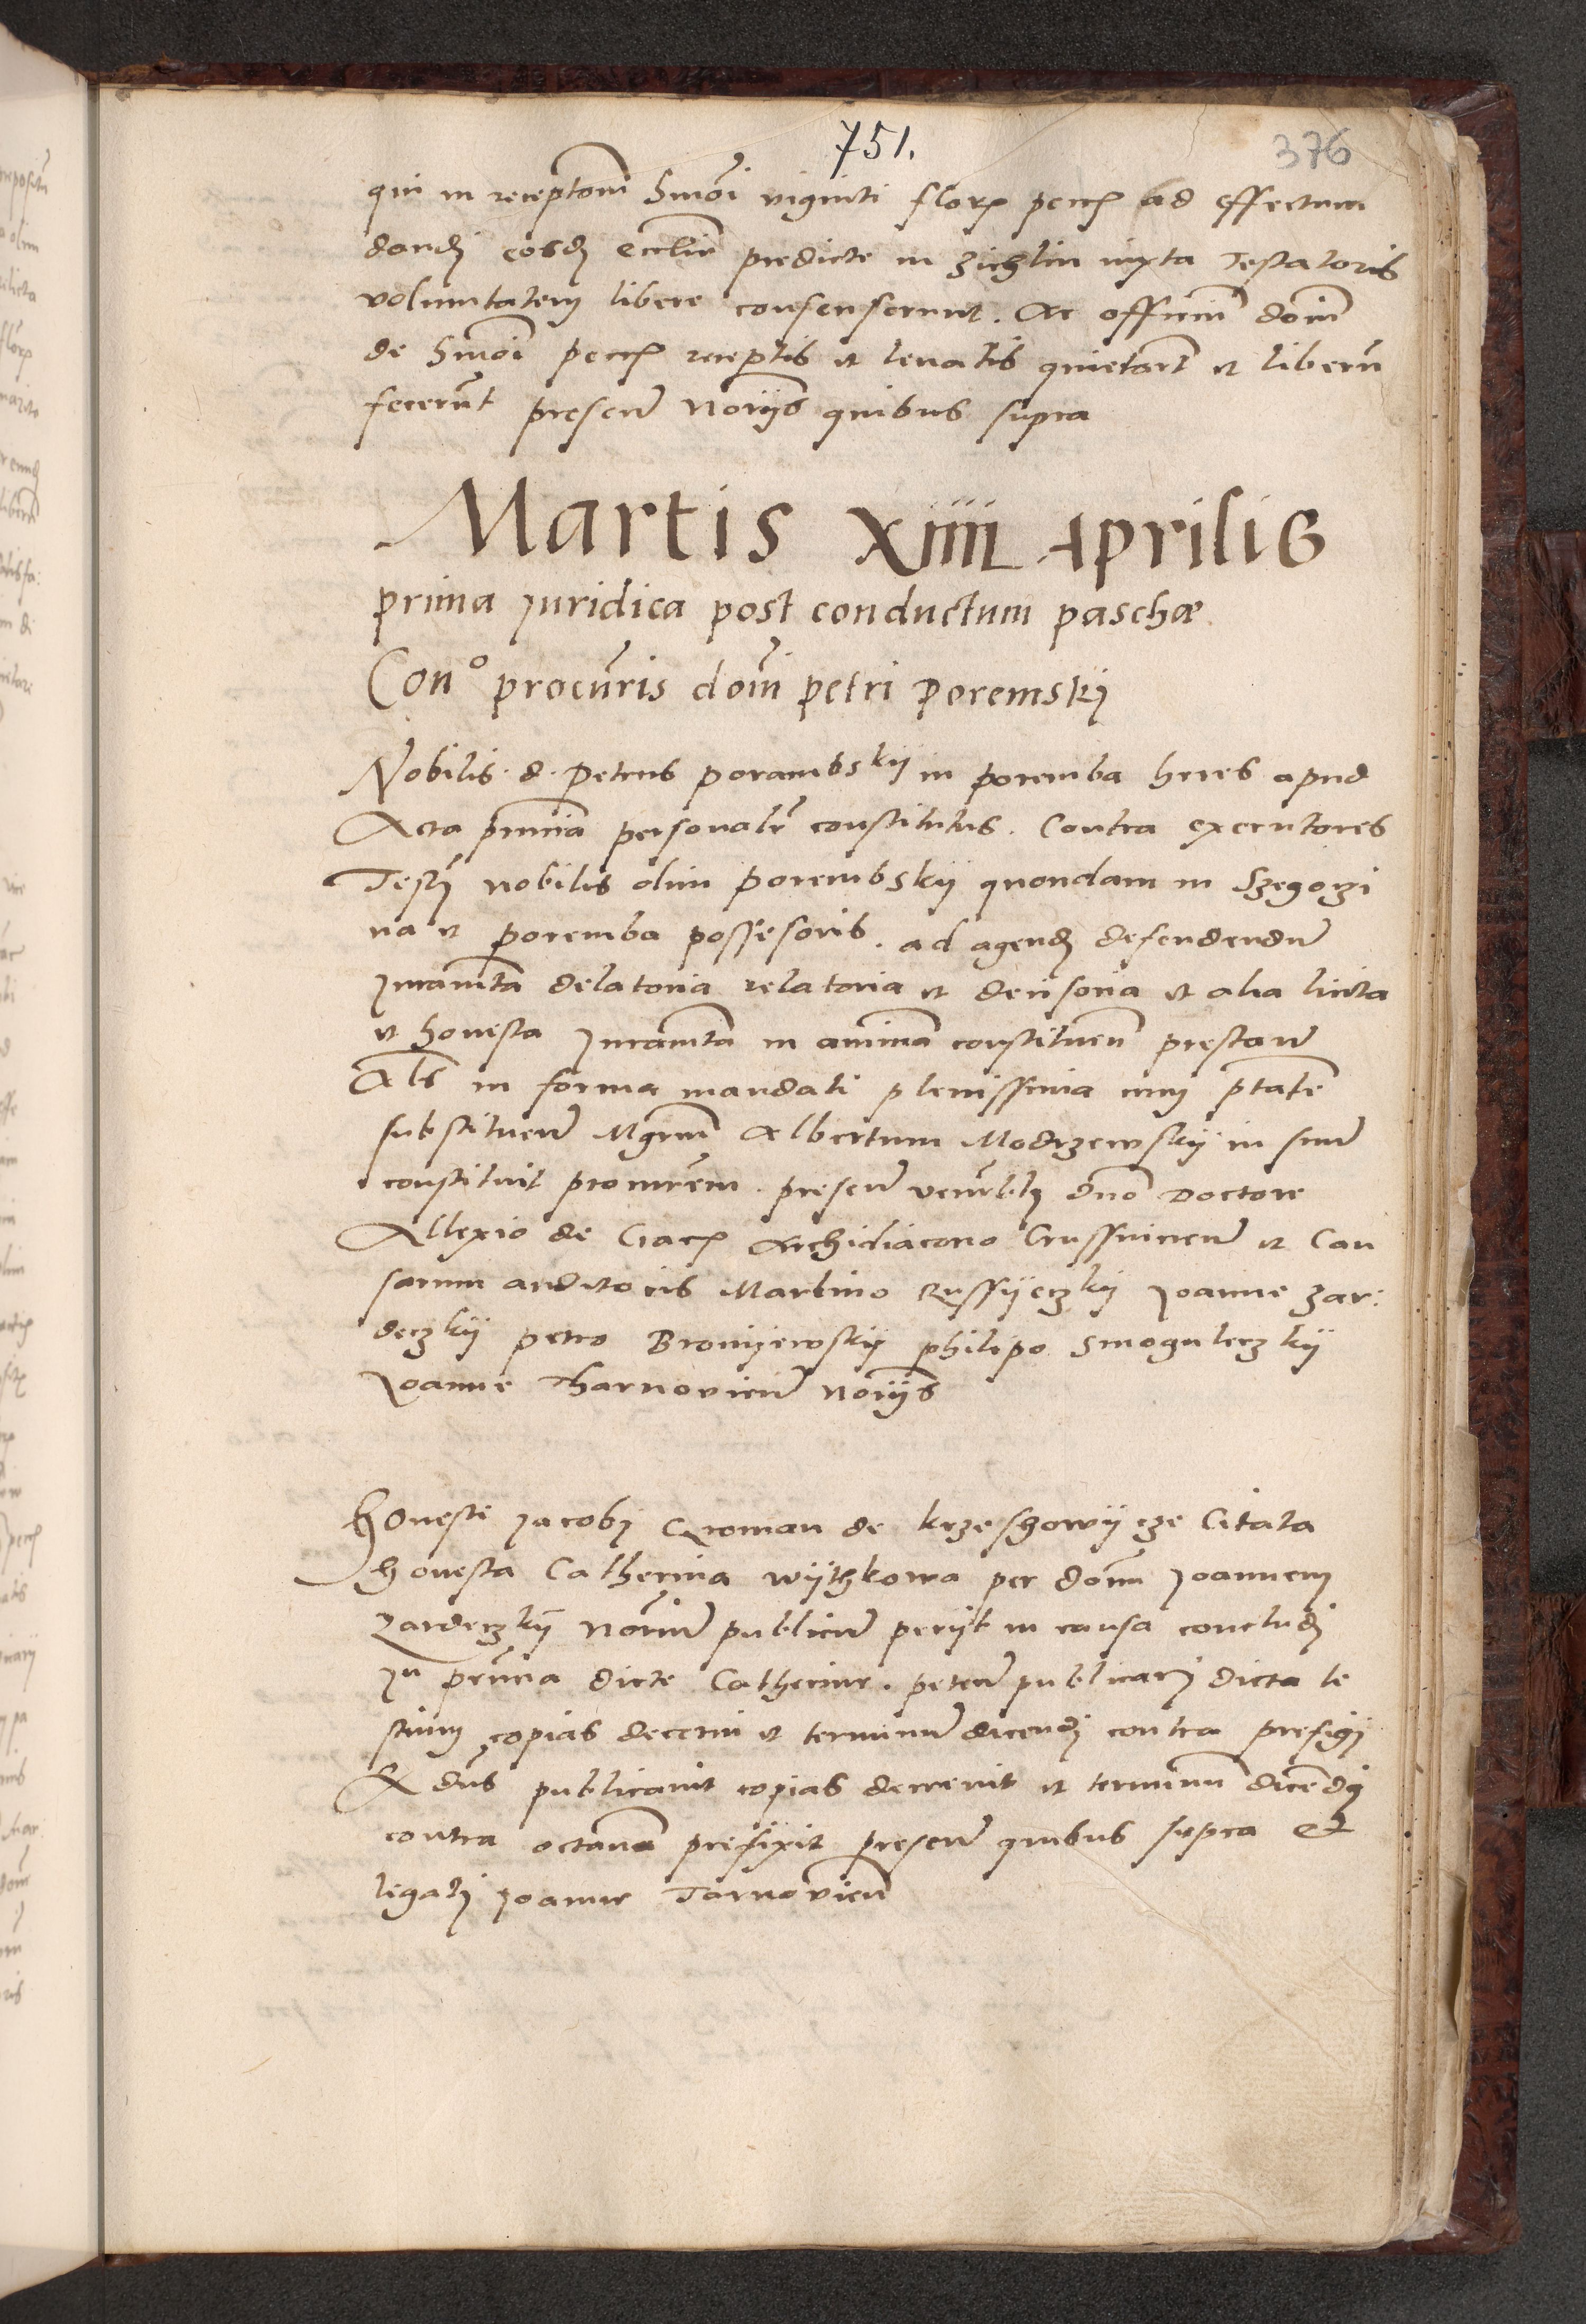 751.
376
qui in receptoni Sm̄oi viginti flor pecc ad effectum
dandj eosdj ecclie predicte in zichlin iuxta Testatoris
voluntatem libere consenserunt. Ac officiū doīni
de Sm̄oi pecc receptis et leuatis quietarūt et liberū
fecerūt presen̄ norijs quibus supra
Martis XIIII Aprilis
prima juridica post conductum paschæ
Con° procūris doīni petri Poremskj
Nobilis. d. Petrus Porambskij in poremba heres apud
Acta pn̄cia personalr̄ constitutus. Contra executores
Testj nobilis olim Porembskij quondam in Szegorzi
na et poremba possesoris. ad agendj defendendū
juramēta delatoria relatoria et deiisoria et alia licita
et honesta juramēta in animā constituen̄ prestan̄
Als in forma mandati plenissima cum p̄tate
substituen̄ Mgrum Albertum Modrzewskij in suū
constituit procurem. presen̄ venerblj dno Doctore
Allexio de Crac Archidiacono Crussvicien̄ et Cau
sarum auditoris Martino Russijeczkij Joanne Zar:
deczkij petro Bronijewskij philipo Smoguleczkij
Joanne Tharnovicen̄ norijs
Honeste Jacobj Croman de krzeshowijcze Citata
honesta Catherina wijthkowa per dom̄ Joannem
Zardeczkij norium publicum perijt in causa concludj
In pn̄cia dicte Catherine. peten̄ publicarj dicta te
stium copias decerni et terminū dicendj contra prefigij
Et dns publicauit copias decreuit et terminum dicēdj
contra octauā prefixit presen̄ quibus supra et
ligatj Joanne Tarnovicen̄